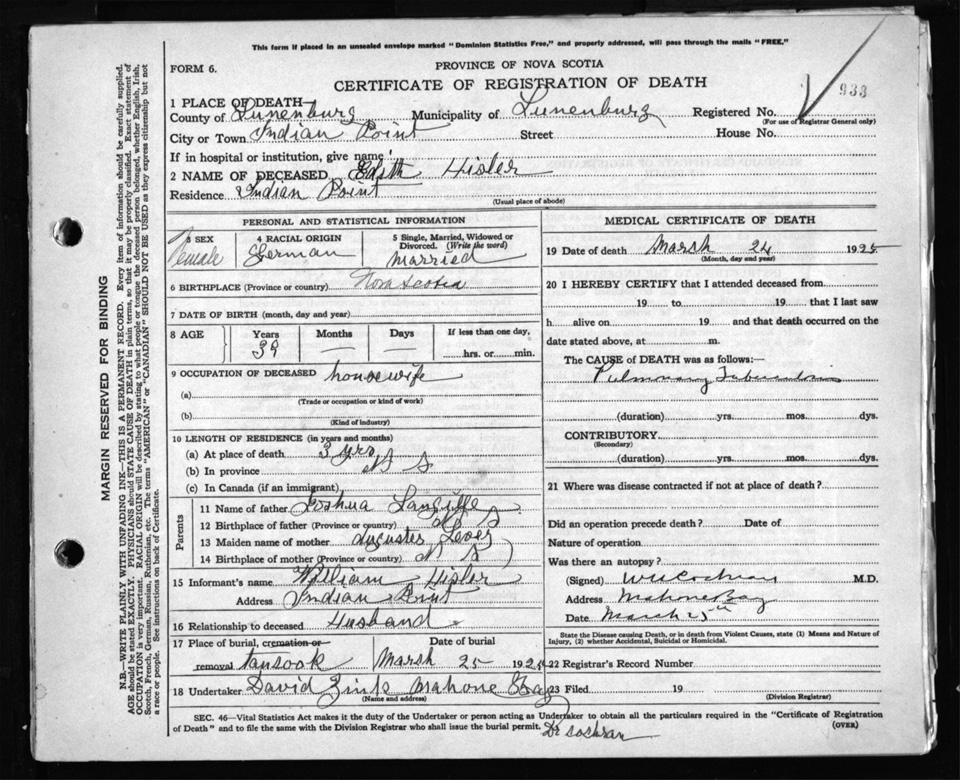 This form if placed in an unsealed envelope marked "Dominion Statistics Free," and properly addressed, will pass through the mails "FREE."
FORM 6.
PROVINCE OF NOVA SCOTIA
CERTIFICATE OF REGISTRATION OF DEATH
933
1 PLACE OF DEATH—
County of Lunenburg Municipality of Lunenburg Registered No.
(For use of Registrar General only)
City or Town Indian Point Street House No.
If in hospital or institution, give name
2 NAME OF DECEASED Edith Hisler
Residence Indian Point
(Usual place of abode)
PERSONAL AND STATISTICAL INFORMATION
3 SEX Female
4 RACIAL ORIGIN German
5 Single, Married, Widowed or Divorced. (Write the word) married
6 BIRTHPLACE (Province or country) Nova Scotia
7 DATE OF BIRTH (month, day and year)
8 AGE Years Months Days If less than one day,
39 — — hrs. or min.
9 OCCUPATION OF DECEASED housewife
(a)
(Trade or occupation or kind of work)
(b)
(Kind of industry)
10 LENGTH OF RESIDENCE (in years and months)
(a) At place of death 3 yrs
(b) In province N S
(c) In Canada (if an immigrant)
Parents
11 Name of father Joshua Langille
12 Birthplace of father (Province or country) N S
13 Maiden name of mother Augustes
14 Birthplace of mother (Province or country) N S
15 Informant's name William Hisler
Address Indian Point
16 Relationship to deceased Husband
17 Place of burial, cremation or Date of burial
removal Tansook Marsh 25 1925
18 Undertaker David Zinke Mahone Bay
(Name and address)
MEDICAL CERTIFICATE OF DEATH
19 Date of death Marsh 24 1925
(Month, day and year)
20 I HEREBY CERTIFY that I attended deceased from
19 to 19 that I last saw
h alive on 19 and that death occurred on
date stated above, at m.
The CAUSE OF DEATH was as follows:—
Pulmonary Tuberculosis
(duration) yrs. mos. dys.
CONTRIBUTORY
(Secondary)
(duration) yrs. mos. dys.
21 Where was disease contracted if not at place of death?
Did an operation precede death? Date of
Nature of operation
Was there an autopsy?
(Signed) W Cochran M.D.
Address Mahone Bay
Date March 25th
State the Disease causing Death, or in death from Violent Causes, state (1) Means and Nature of
Injury, (2) whether Accidental, Suicidal or Homicidal.
22 Registrar's Record Number
23 Filed 19
(Division Registrar)
SEC. 46—Vital Statistics Act makes it the duty of the Undertaker or person acting as Undertaker to obtain all the particulars required in the "Certificate of Registration
of Death" and to file the same with the Division Registrar who shall issue the burial permit.
(OVER)
Dr Cochran
MARGIN RESERVED FOR BINDING
N.B.—WRITE PLAINLY WITH UNFADING INK—THIS IS A PERMANENT RECORD. Every item of information should be carefully supplied.
AGE should be stated EXACTLY. PHYSICIANS should STATE CAUSE OF DEATH in plain terms, so that it may be properly classified. Exact statement of
OCCUPATION is very important. RACIAL ORIGIN will be described by stating to what people or tongue the deceased person belonged, whether English, Irish,
Scotch, French, German, Russian, Ruthenian, etc. The terms "AMERICAN" or "CANADIAN" SHOULD NOT BE USED as they express citizenship but not
a race or people. See instructions on back of Certificate.